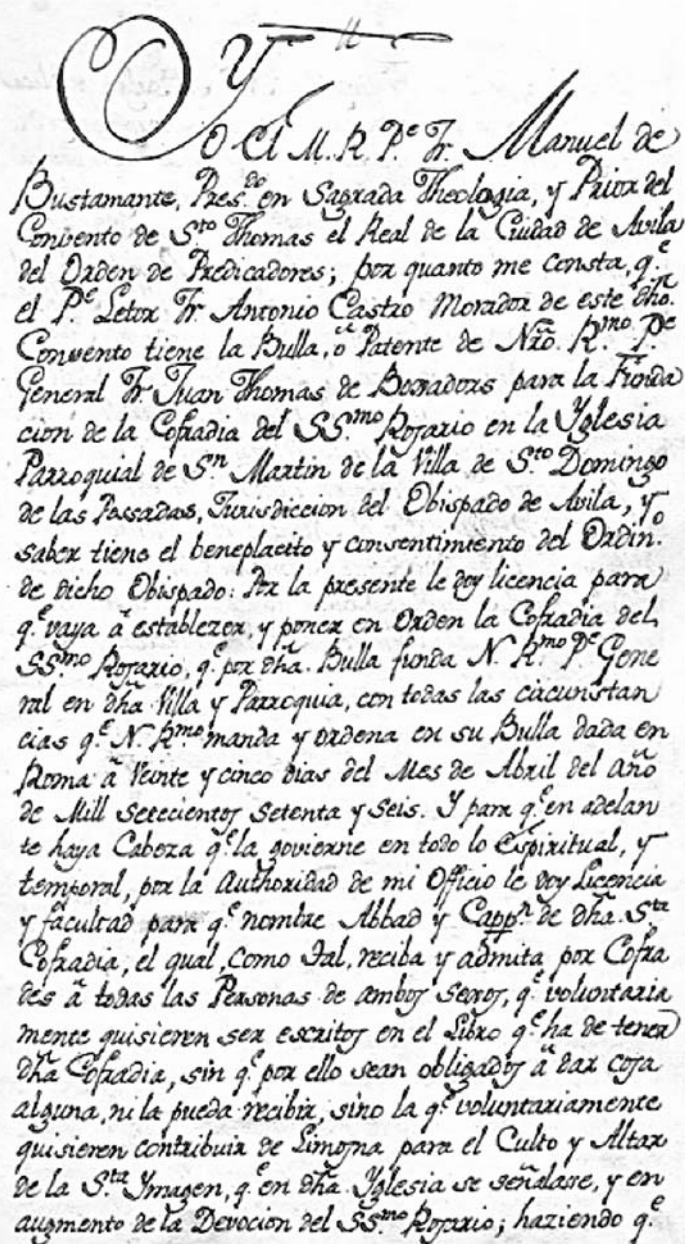 Yo el M. R. P.e Fr. Manuel de
Bustamante, Pres.do en Sagrada Theologia, y Prior del
Convento de S.to Thomas el Real de la Ciudad de Avila
del Orden de Predicadores; por quanto me consta, q.e
el P.e Letor Fr. Antonio Castro Morador de este dho.
Convento tiene la Bulla, ò Patente de Nrõ. R.mo P.e
General Fr. Juan Thomas de Boxadors para la Funda
cion de la Cofradia del SS.mo Rosario en la Yglesia
Parroquial de S.n Martin de la Villa de S.to Domingo
de las Possadas, Jurisdiccion del Obispado de Avila, y
saber tiene el beneplacito y consentimiento del Ordin.o
de dicho Obispado: Por la presente le doy licencia para
q.e vaya à establezer, y poner en Orden la Cofradia del
SS.mo Rosario, q.e por dhã. Bulla funda N. R.mo P.e Gene
ral en dhã Villa y Parroquia, con todas las circunstan
cias q.e N. R.mo manda y ordena en su Bulla dada en
Roma à Veinte y cinco dias del Mes de Abril del año
de Mill setecientos setenta y seis. Y para q.e en adelan
te haya Cabeza q.e la govierne en todo lo Espiritual, y
temporal, por la Authoridad de mi Officio le doy Licencia
y facultad para q.e nombre Abbad y Capp.n de dhã. S.ta
Cofradia, el qual, como tal, reciba y admita por Cofra
des à todas las Personas de ambos sexos, q.e voluntaria
mente quisieren ser escritos en el Libro q.e ha de tener
dhã Cofradia, sin q.e por ello sean obligados à dar cosa
alguna, ni la pueda recibir, sino la q.e voluntariamente
quisieren contribuir de Limosna para el Culto y Altar
de la S.ta Ymagen, q.e en dhã. Yglesia se señalare, y en
augmento de la Devocion del SS.mo Rosario; haziendo q.e